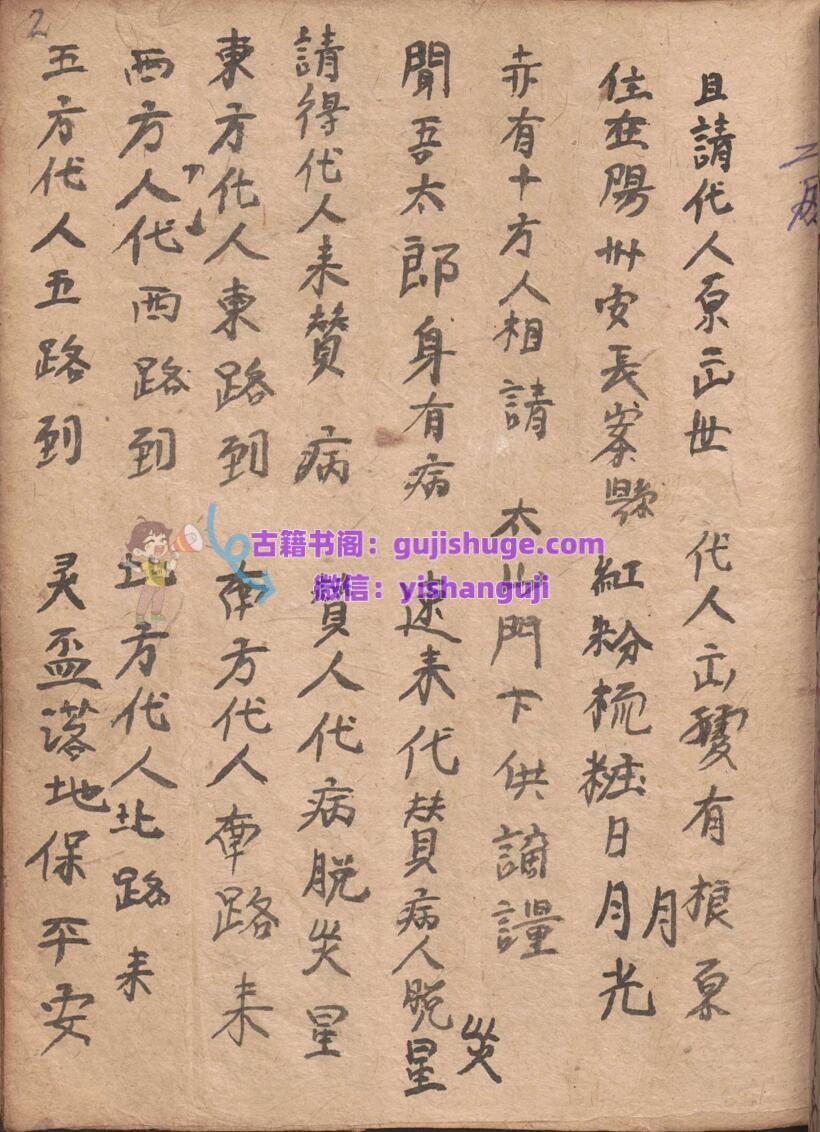 2
且請代人原出世 代人出䕶有根原
住在陽州安長寨縣 紅粉梳粧日月光
月
亦有十方人相請 太山門下供謫量
聞吾太郎身有病 速来代賛病人脱星
災
請得代人来賛病 賛人代病脱災星
東方代人東路到 南方代人南路来
西方人代西路到 北方代人北路来
五方代人五路到 灵盃落地保平安
古籍书阁：gujishuge.com
微信：yishanguji